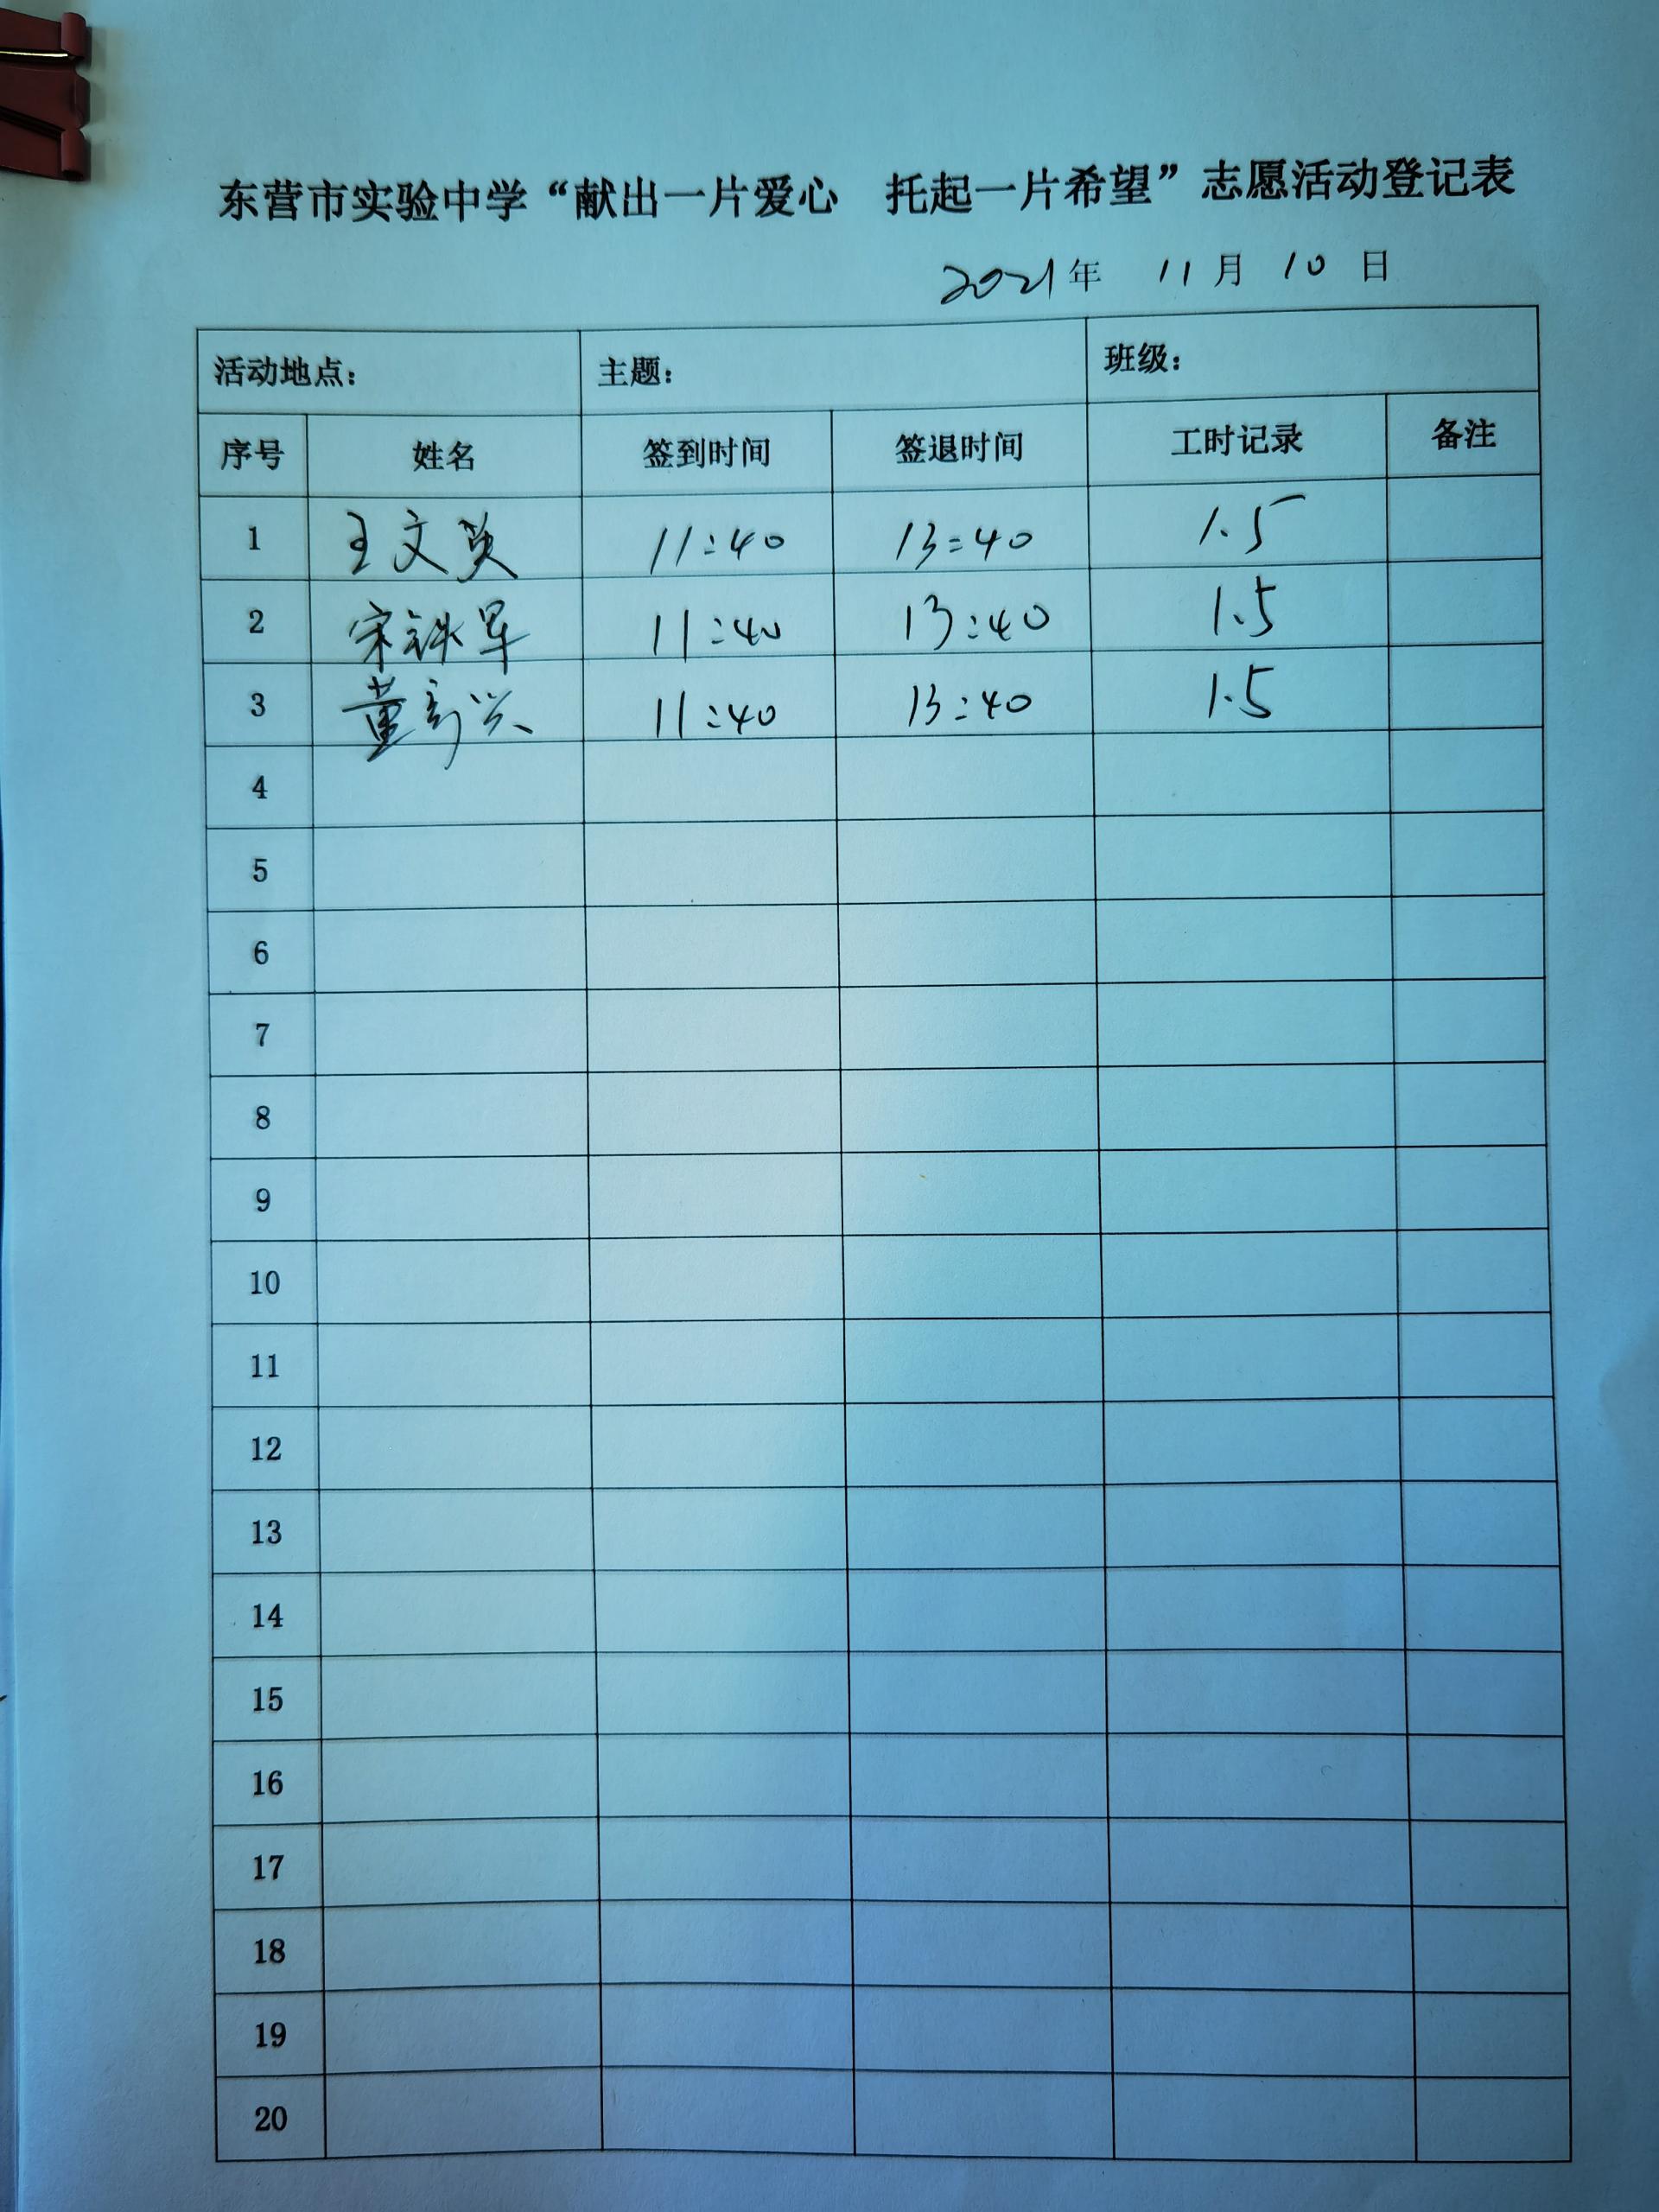 东营市实验中学“献出一片爱心 托起一片希望”志愿活动登记表
2021年 11月 10日
活动地点: 主题: 班级:
序号 姓名 签到时间 签退时间 工时记录 备注
1 王文英 11:40 13:40 1.5
2 宋铁军 11:40 13:40 1.5
3 董 11:40 13:40 1.5
4
5
6
7
8
9
10
11
12
13
14
15
16
17
18
19
20